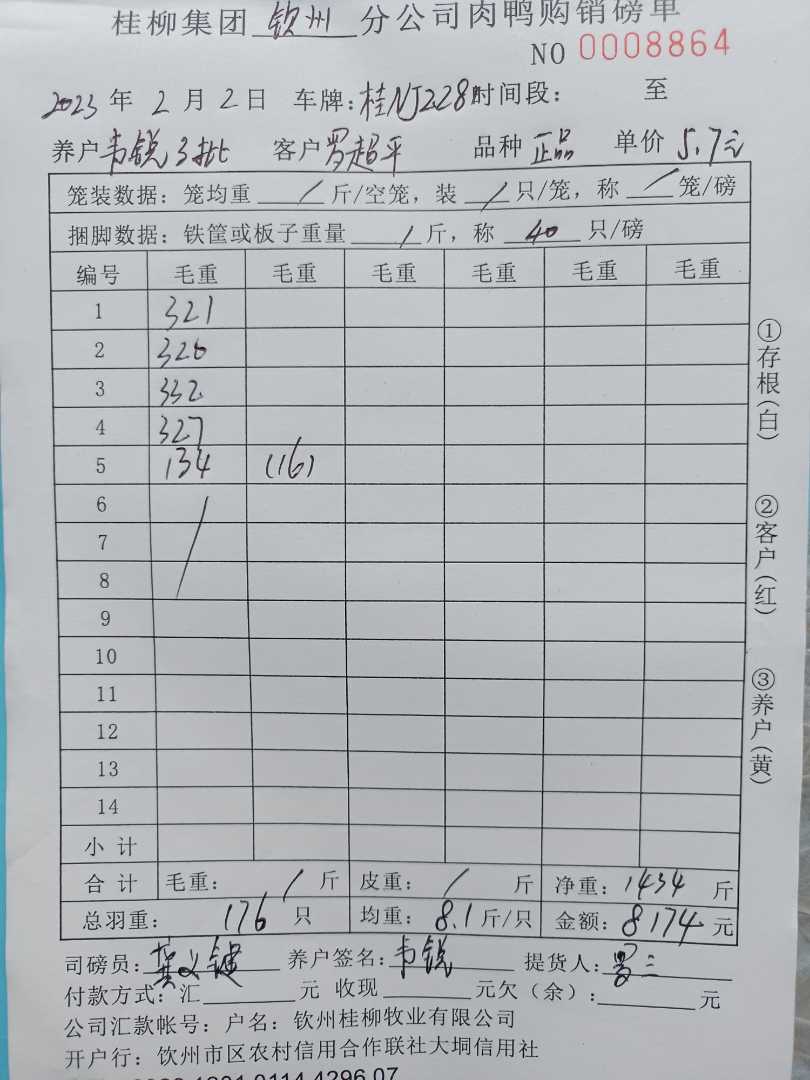 桂柳集团 钦州 分公司肉鸭购销磅单
NO 0008864
2023 年 2 月 2 日 车牌:桂NJ228 时间段: 至
养户 韦锐3批 客户 罗超平 品种 正品 单价 5.7元
笼装数据: 笼均重 / 斤/空笼, 装 / 只/笼, 称 / 笼/磅
捆脚数据: 铁筐或板子重量 / 斤, 称 40 只/磅
编号 毛重 毛重 毛重 毛重 毛重 毛重
1 321
2 320
3 332
4 327
5 134 (16)
6
7
8
9
10
11
12
13
14
小计
合计 毛重: / 斤 皮重: / 斤 净重: 1434 斤
总羽重: 176 只 均重: 8.1 斤/只 金额: 8174 元
司磅员: 龚义键 养户签名: 韦锐 提货人: 罗三
付款方式: 汇 元 收现 元欠(余): 元
公司汇款帐号: 户名: 钦州桂柳牧业有限公司
开户行: 钦州市区农村信用合作联社大垌信用社
①存根(白)
②客户(红)
③养户(黄)